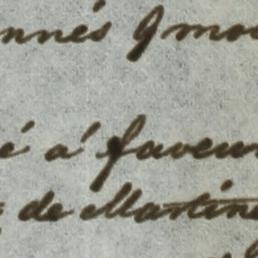 nnés 9 mo
é a' faveur
de Martin